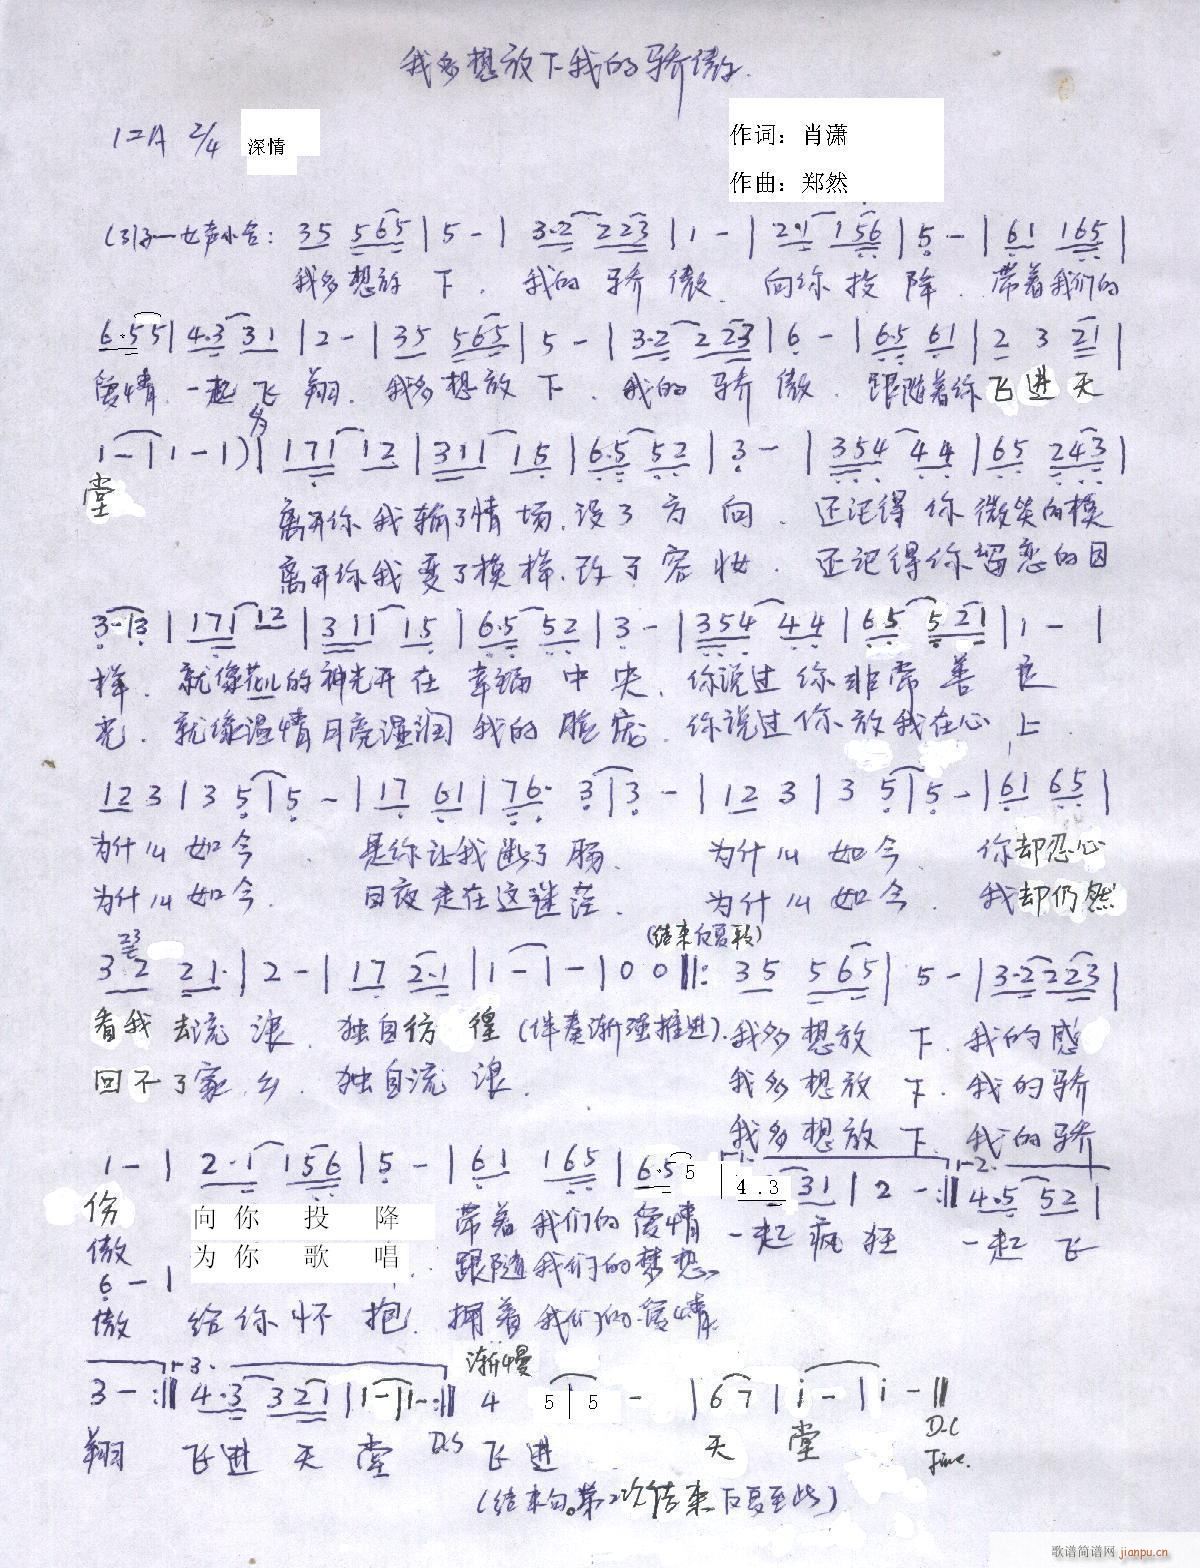 我多想放下我的骄傲
1=A 2/4 深情 作词：肖潇
作曲：郑然
(引子—女声小合: 35 565 | 5 - | 3·2 223 | 1 - | 2·1 156 | 5 - | 61 165 |
我多想放 下. 我的骄傲. 向你投 降. 带着我们的
6·55 | 4·3 31 | 2 - | 35 565 | 5 - | 3·2 2 23 | 6 - | 6·5 61 | 2 3 21 |
爱情.一起飞 翔. 我多想放 下. 我的骄 傲. 跟随着你飞进天
1 - | 1 - | ) | 男 171 12 | 311 15 | 6·5 52 | 3 - | 354 44 | 65 243 |
堂 离开你我输了情场.没了方 向. 还记得你微笑的模
离开你我变了模样.改了容妆. 还记得你留恋的目
3 - 3 | 171 12 | 311 15 | 6·5 52 | 3 - | 354 44 | 65 521 | 1 - |
样. 就像花儿的神光开在幸福中央. 你说过你非常善良
光. 就像温情月亮湿润我的脸庞. 你说过你放我在心上
12 3 | 3 5 | 5 - | 17 61 | 76· 3 | 3 - | 12 3 | 3 5 | 5 - | 61 65 |
为什么如今. 是你让我断了肠. 为什么如今. 你却忍心
为什么如今. 日夜走在这迷茫. 为什么如今. 我却仍然
23 (结束反复转)
3 2 21· | 2 - | 17 2·1 | 1 - | - | 0 0 ‖: 35 565 | 5 - | 3·2 223 |
看我去流浪. 独自彷徨(伴奏渐强推进). 我多想放 下. 我的感
回不了家乡. 独自流浪. 我多想放 下. 我的骄
我多想放 下. 我的骄
1 - | 2·1 156 | 5 - | 61 165 | 6·5 5 | 1. 4.3 31 | 2 - :‖ 2. 4·5 52 |
伤 向你投降 带着我们的爱情 一起疯狂 一起飞
傲 为你歌唱 跟随我们的梦想
6 - |
傲 给你怀抱. 拥着我们的爱情.
渐慢
3 - :‖ 3. 4·3 321 | 1 - | 1 - :‖ 4 5 | 5 - | 67 | i - | i - ‖
翔 飞进天堂 D.S 飞进 天 堂 D.C
Fine.
(结束句。第2次结束反复至此)
歌谱简谱网 jianpu.cn